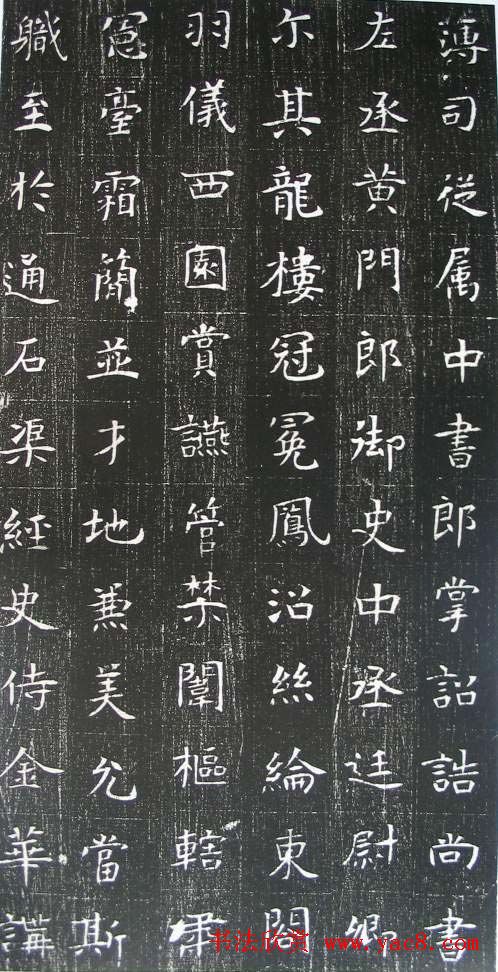 薄司從属中書郎掌詔誥尚書
左丞黄門郎御史中丞廷尉卿
尓其龍樓冠冕鳳沼絲綸東閤
羽儀西園賞讌管禁闈樞轄肅
憲臺霜簡並才地兼美允當斯
職至於通石渠經史侍金華講
书法欣赏 www.yac8.com